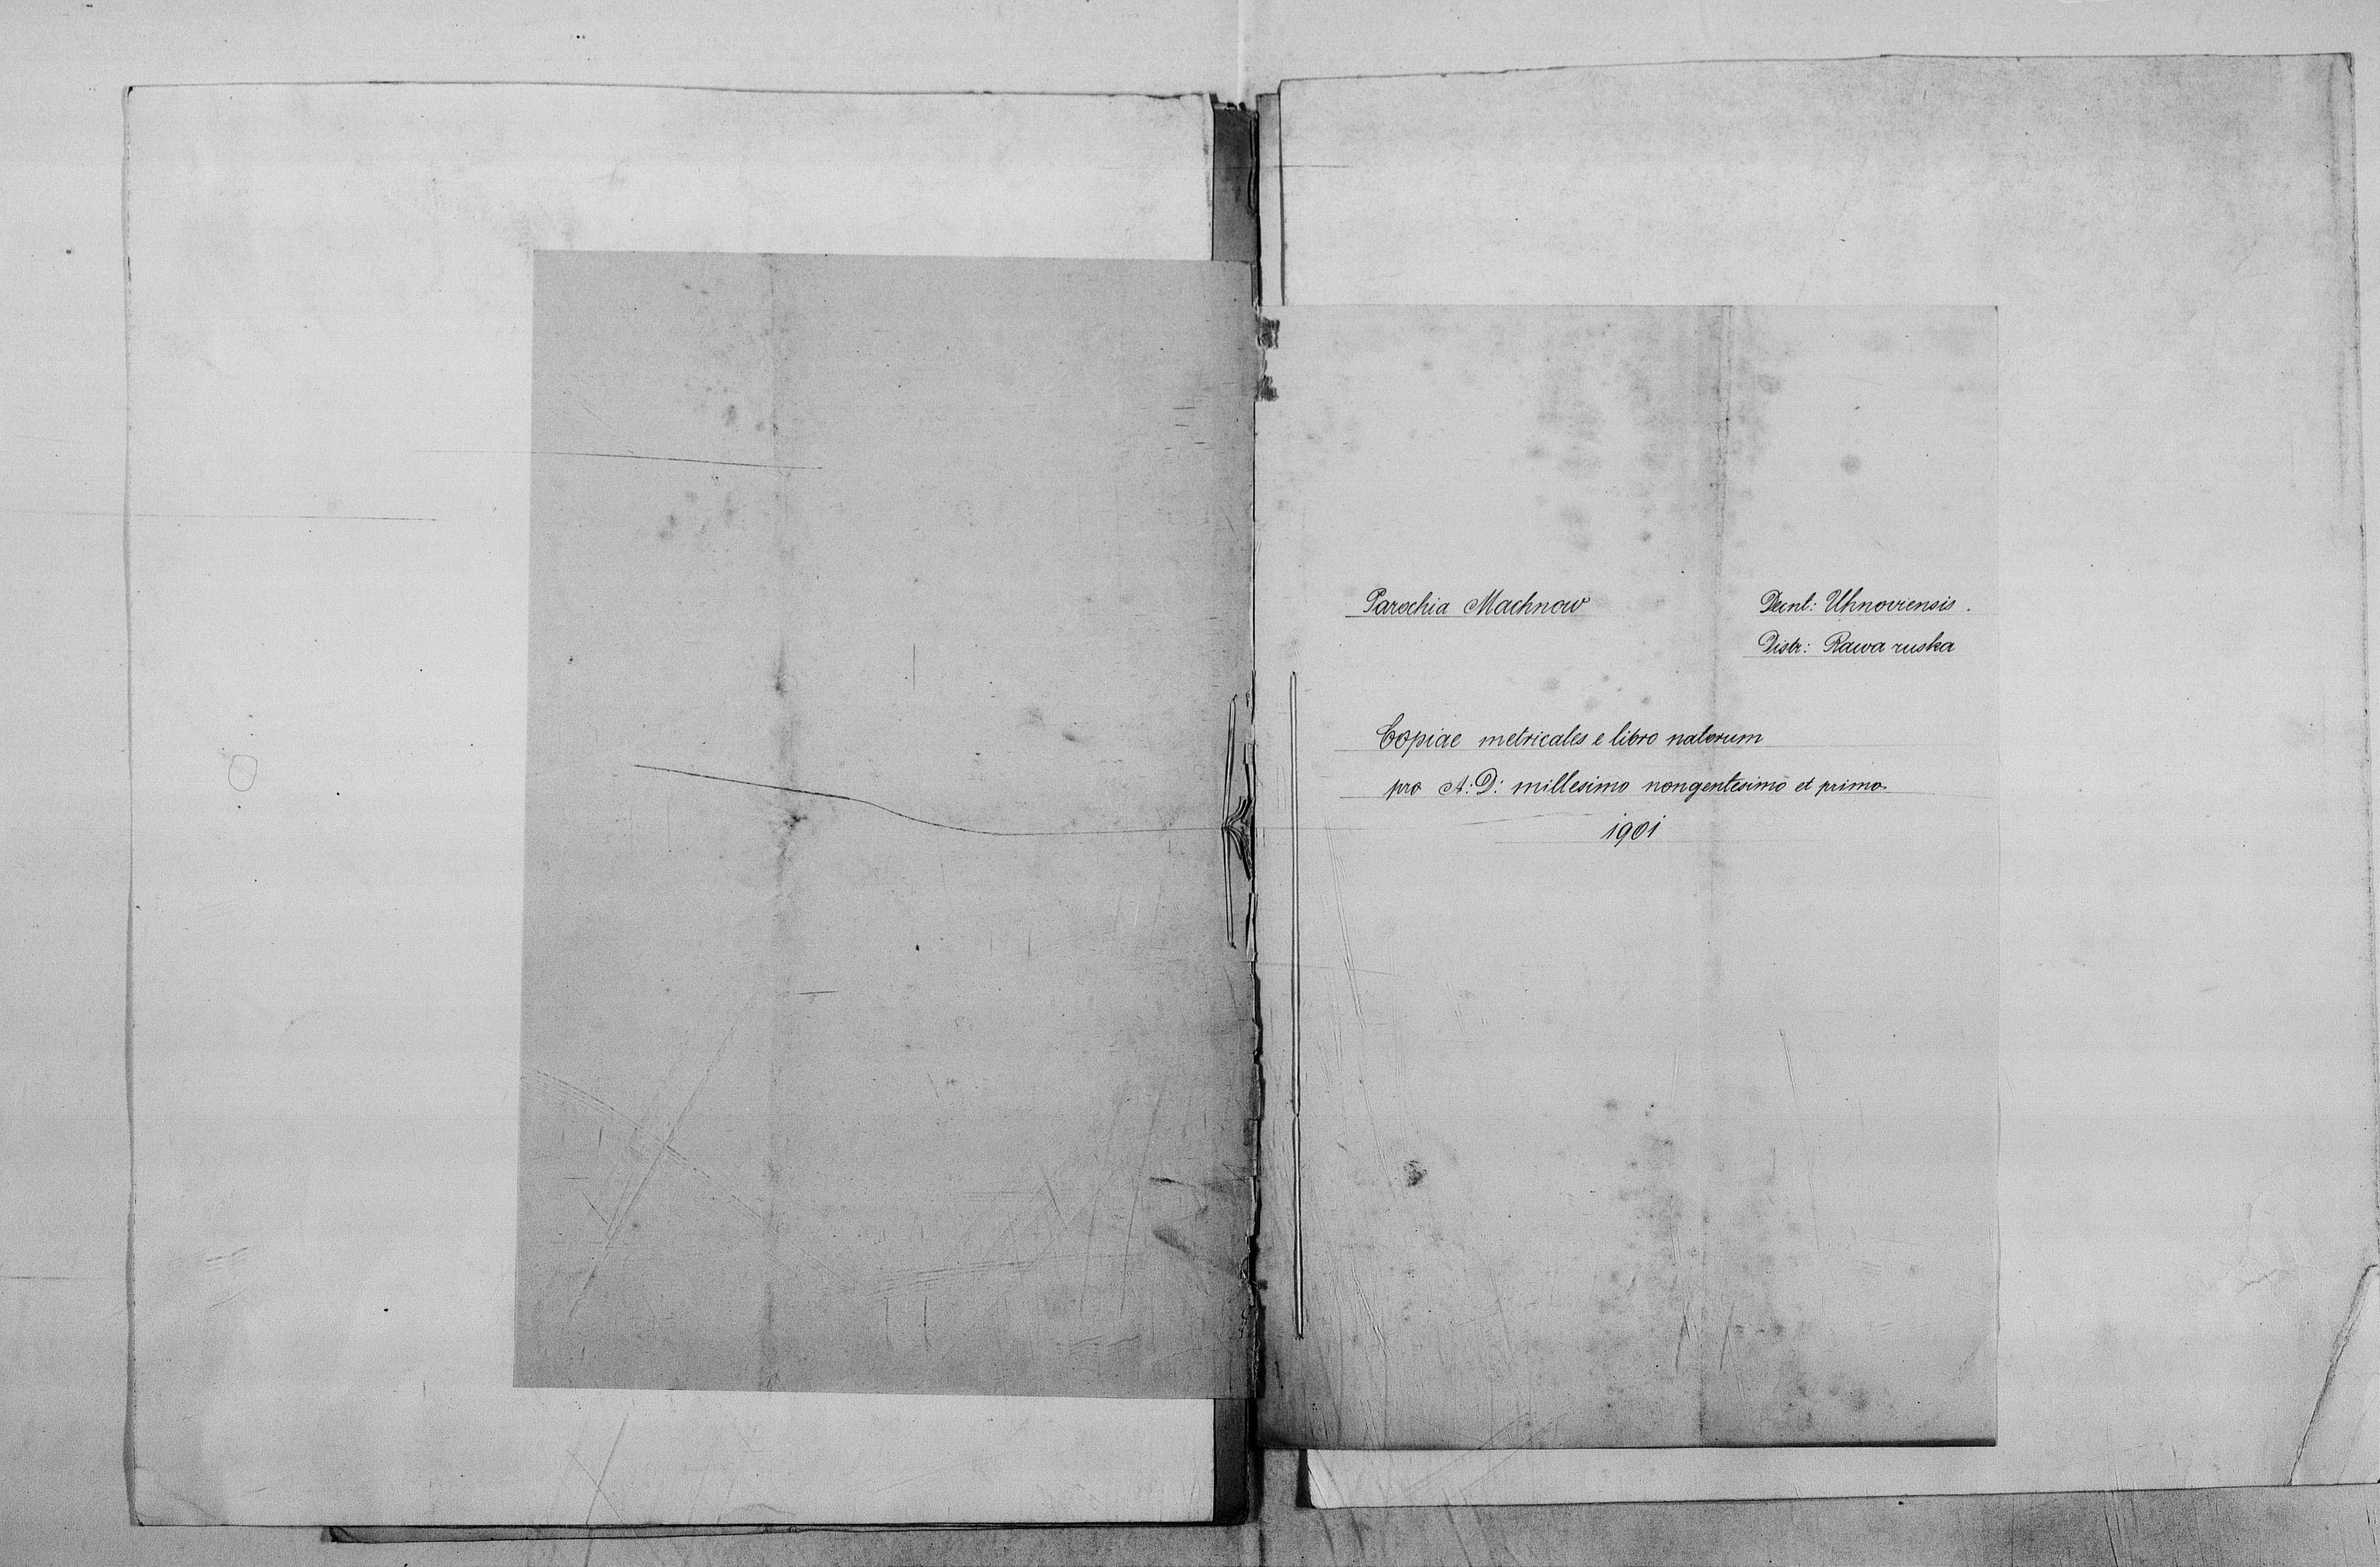 Parochia Machnow
Decnt: Uhnoviensis.
Distr: Rawa ruska
Copiae metricales e libro natorum
pro A: D: millesimo nongentesimo et primo
1901